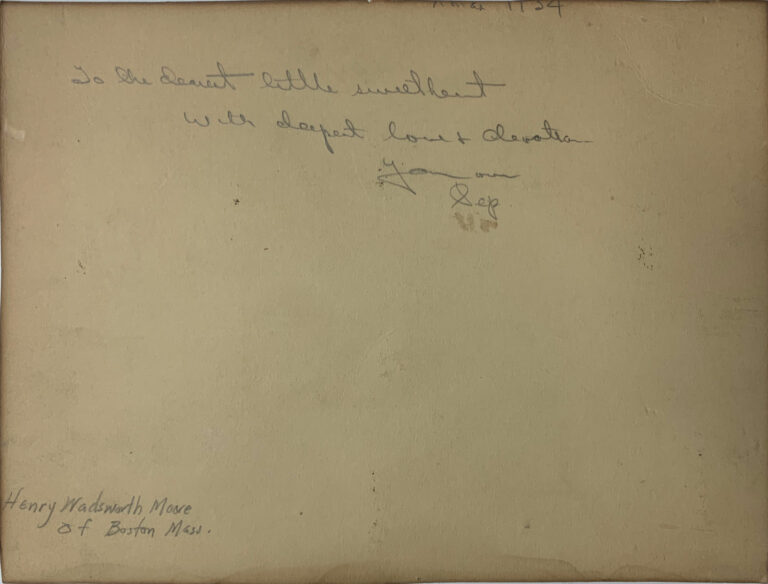 Xmas 1934
To the dearest little sweetheart
with deepest love & devotion
Your own
Sep
Henry Wadsworth Moore
of Boston Mass.